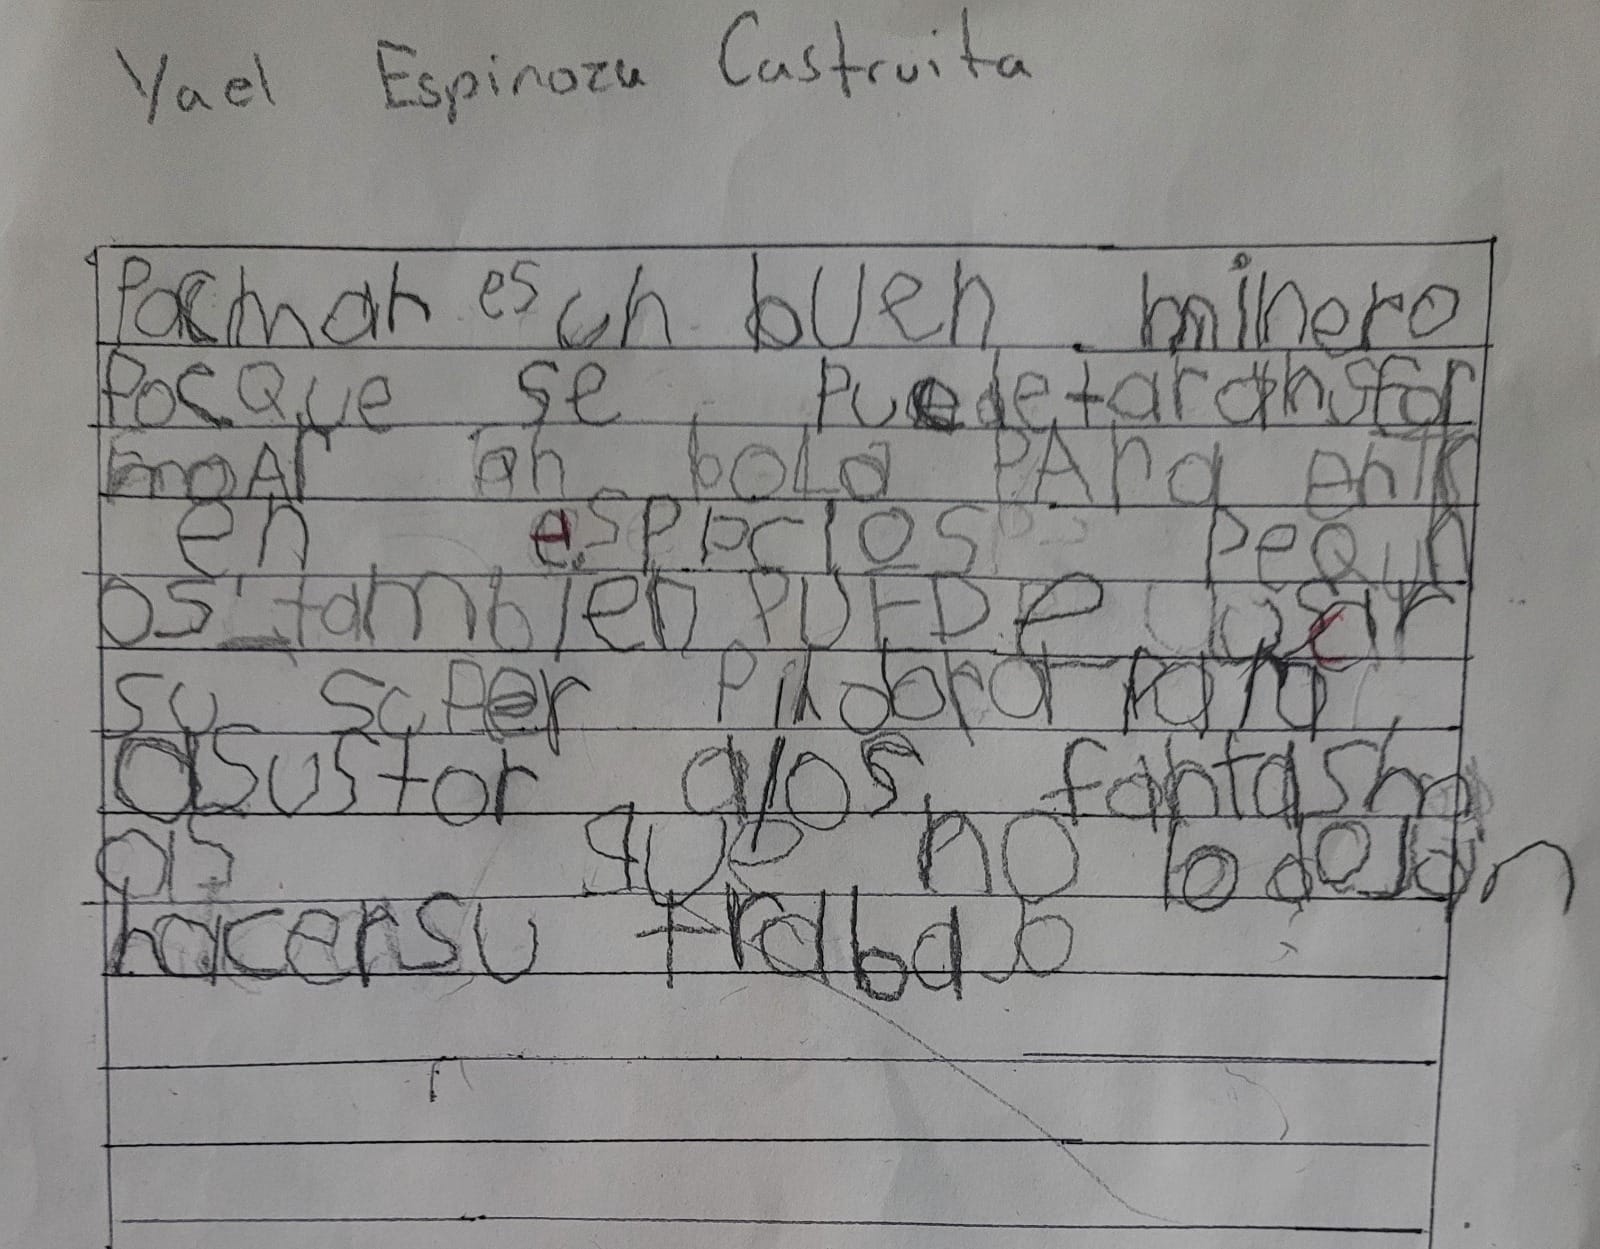 Yael Espinoza Castruita
Pacman es un buen minero
Porque se puede taransfor
moAr en bola PAra entr
en espacios pequn
os también PUEDe usar
su super Pildora para
asustar a los fantasm
as que no lo dejan
hacer su trabajo